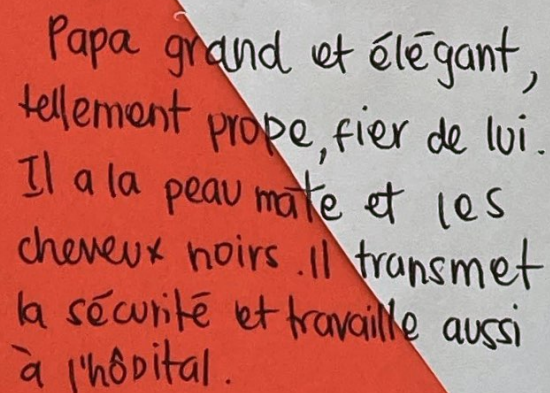 Papa grand et élégant,
tellement prope, fier de lui.
Il a la peau mate et les
cheveux noirs. Il transmet
la sécurité et travaille aussi
à l'hôpital.